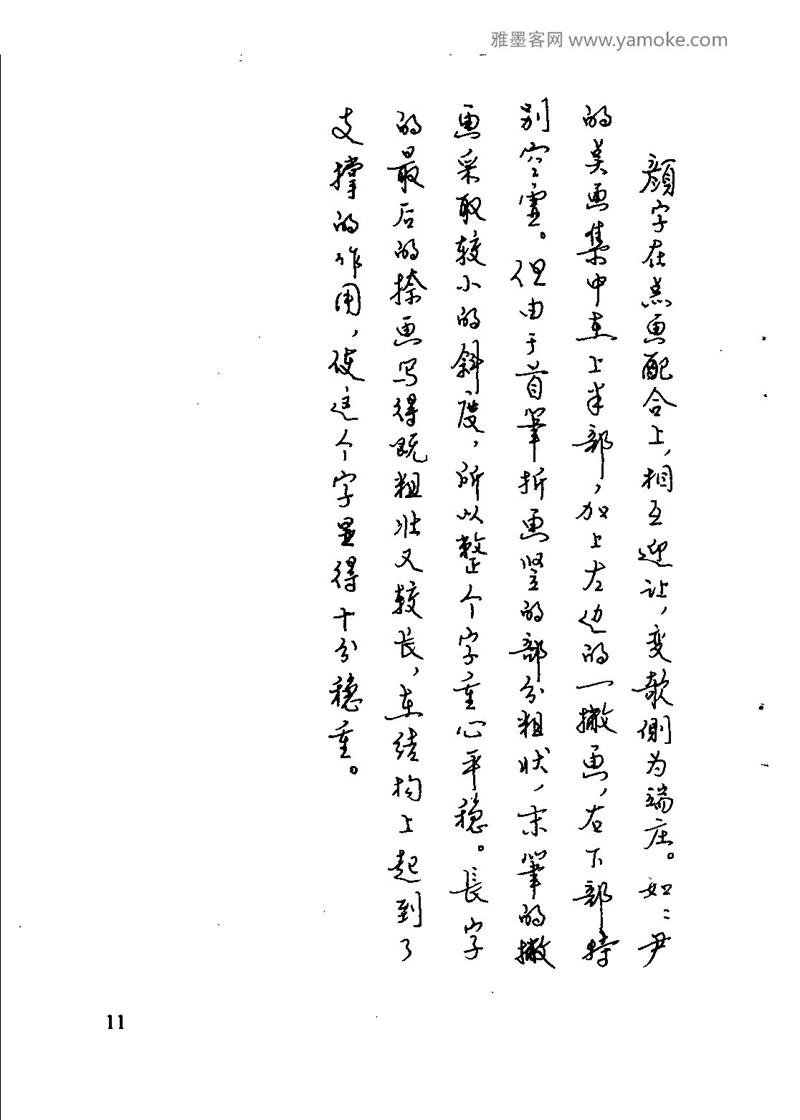 雅墨客网 www.yamoke.com
顏字在点画配合上，相互迎让，变欹侧为端庄。如：尹
的笔画集中在上半部，加上左边的一撇画，右下部特
别空虚。但由于首筆折画竖的部分粗状，末筆的撇
画采取较小的斜度，所以整个字重心平稳。長字
的最后的捺画写得既粗壮又较长，在结构上起到了
支撑的作用，使这个字显得十分稳重。
11